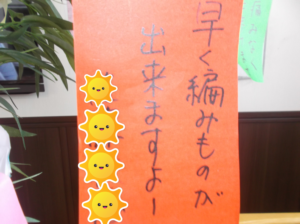 早く編みものが
出来ますよー